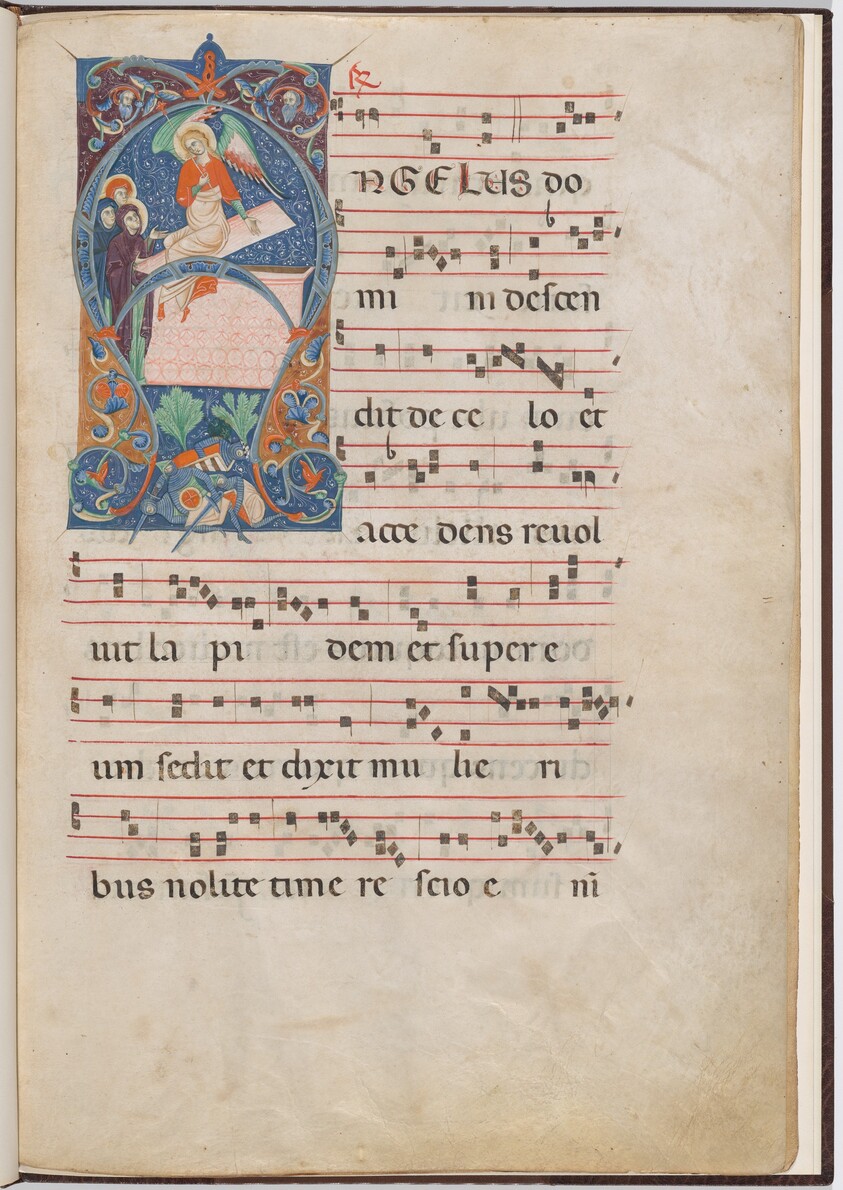 ℟
ANGELUS do
mi ni descen
dit de ce lo et
acce dens reuol
uit la pi dem et super e
um sedit et dixit mu lie ri
bus nolite time re scio e ni̅